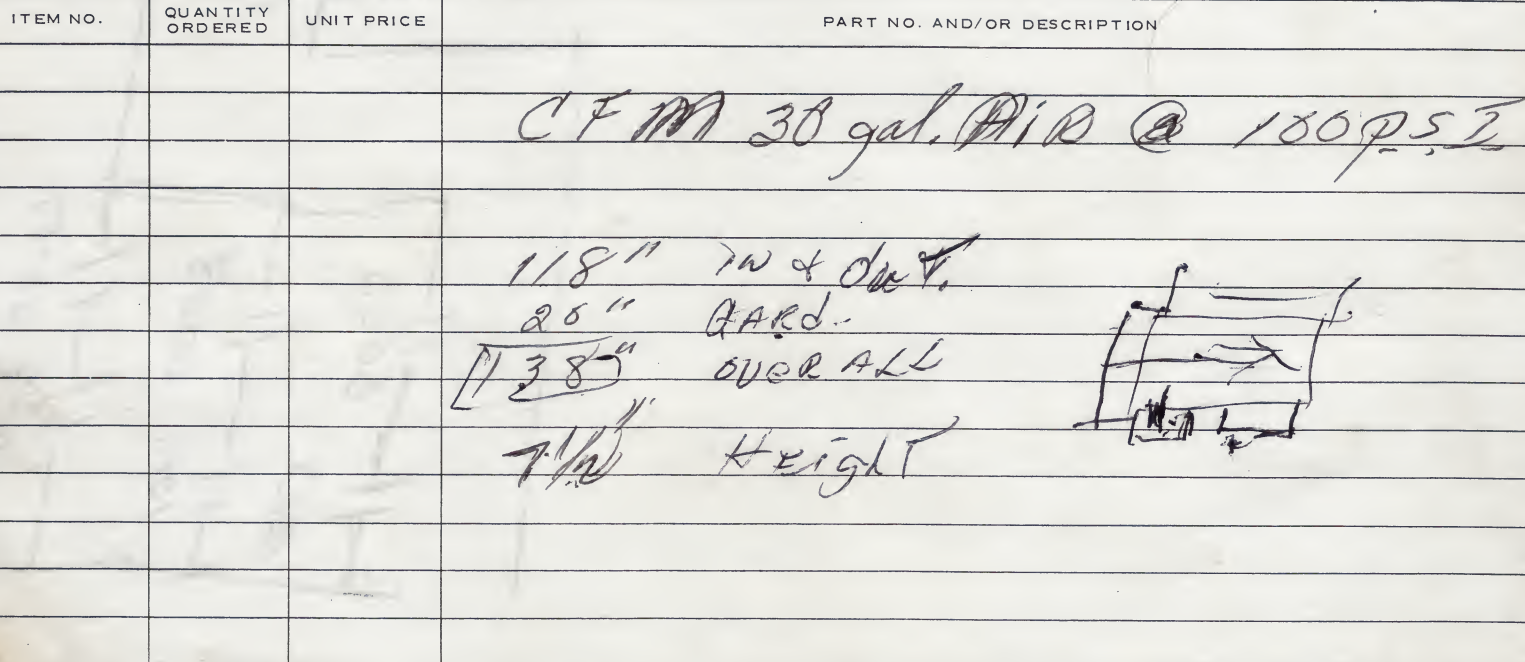 ITEM NO. QUANTITY ORDERED UNIT PRICE PART NO. AND/OR DESCRIPTION
CFM 30 gal. AiR @ 100 PSI
118" IN & OuT.
20" GARd.
138" OVeR ALL
Height